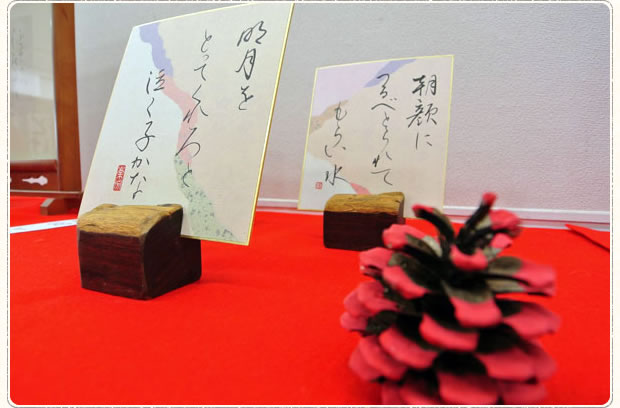 明月を
とってくれろと
泣く子かな
朝顔に
つるべとられて
もらい水